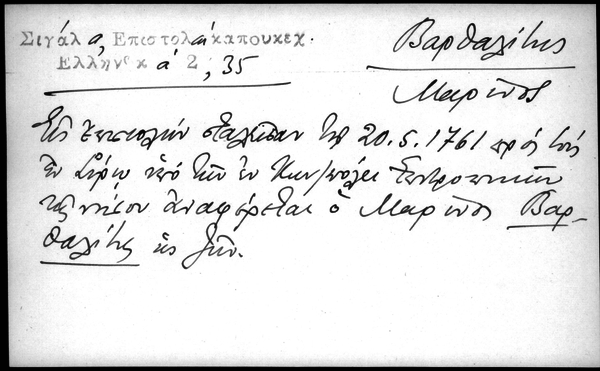 Σιγάλα, Επιστολαί καπουκεχ.
Ελληνικά 2, 35
Βαρθαλίτης
Μαρῖνος
Εἰς ἐπιστολήν σταλεῖσαν τῇ 20.5.1761 πρός τούς
ἐν Σύρῳ ὑπό τῶν ἐν Κων/πόλει Ἐπιτρόπων
τῆς νήσου ἀναφέρεται ὁ Μαρῖνος Βαρ-
θαλίτης ὡς ζῶν.